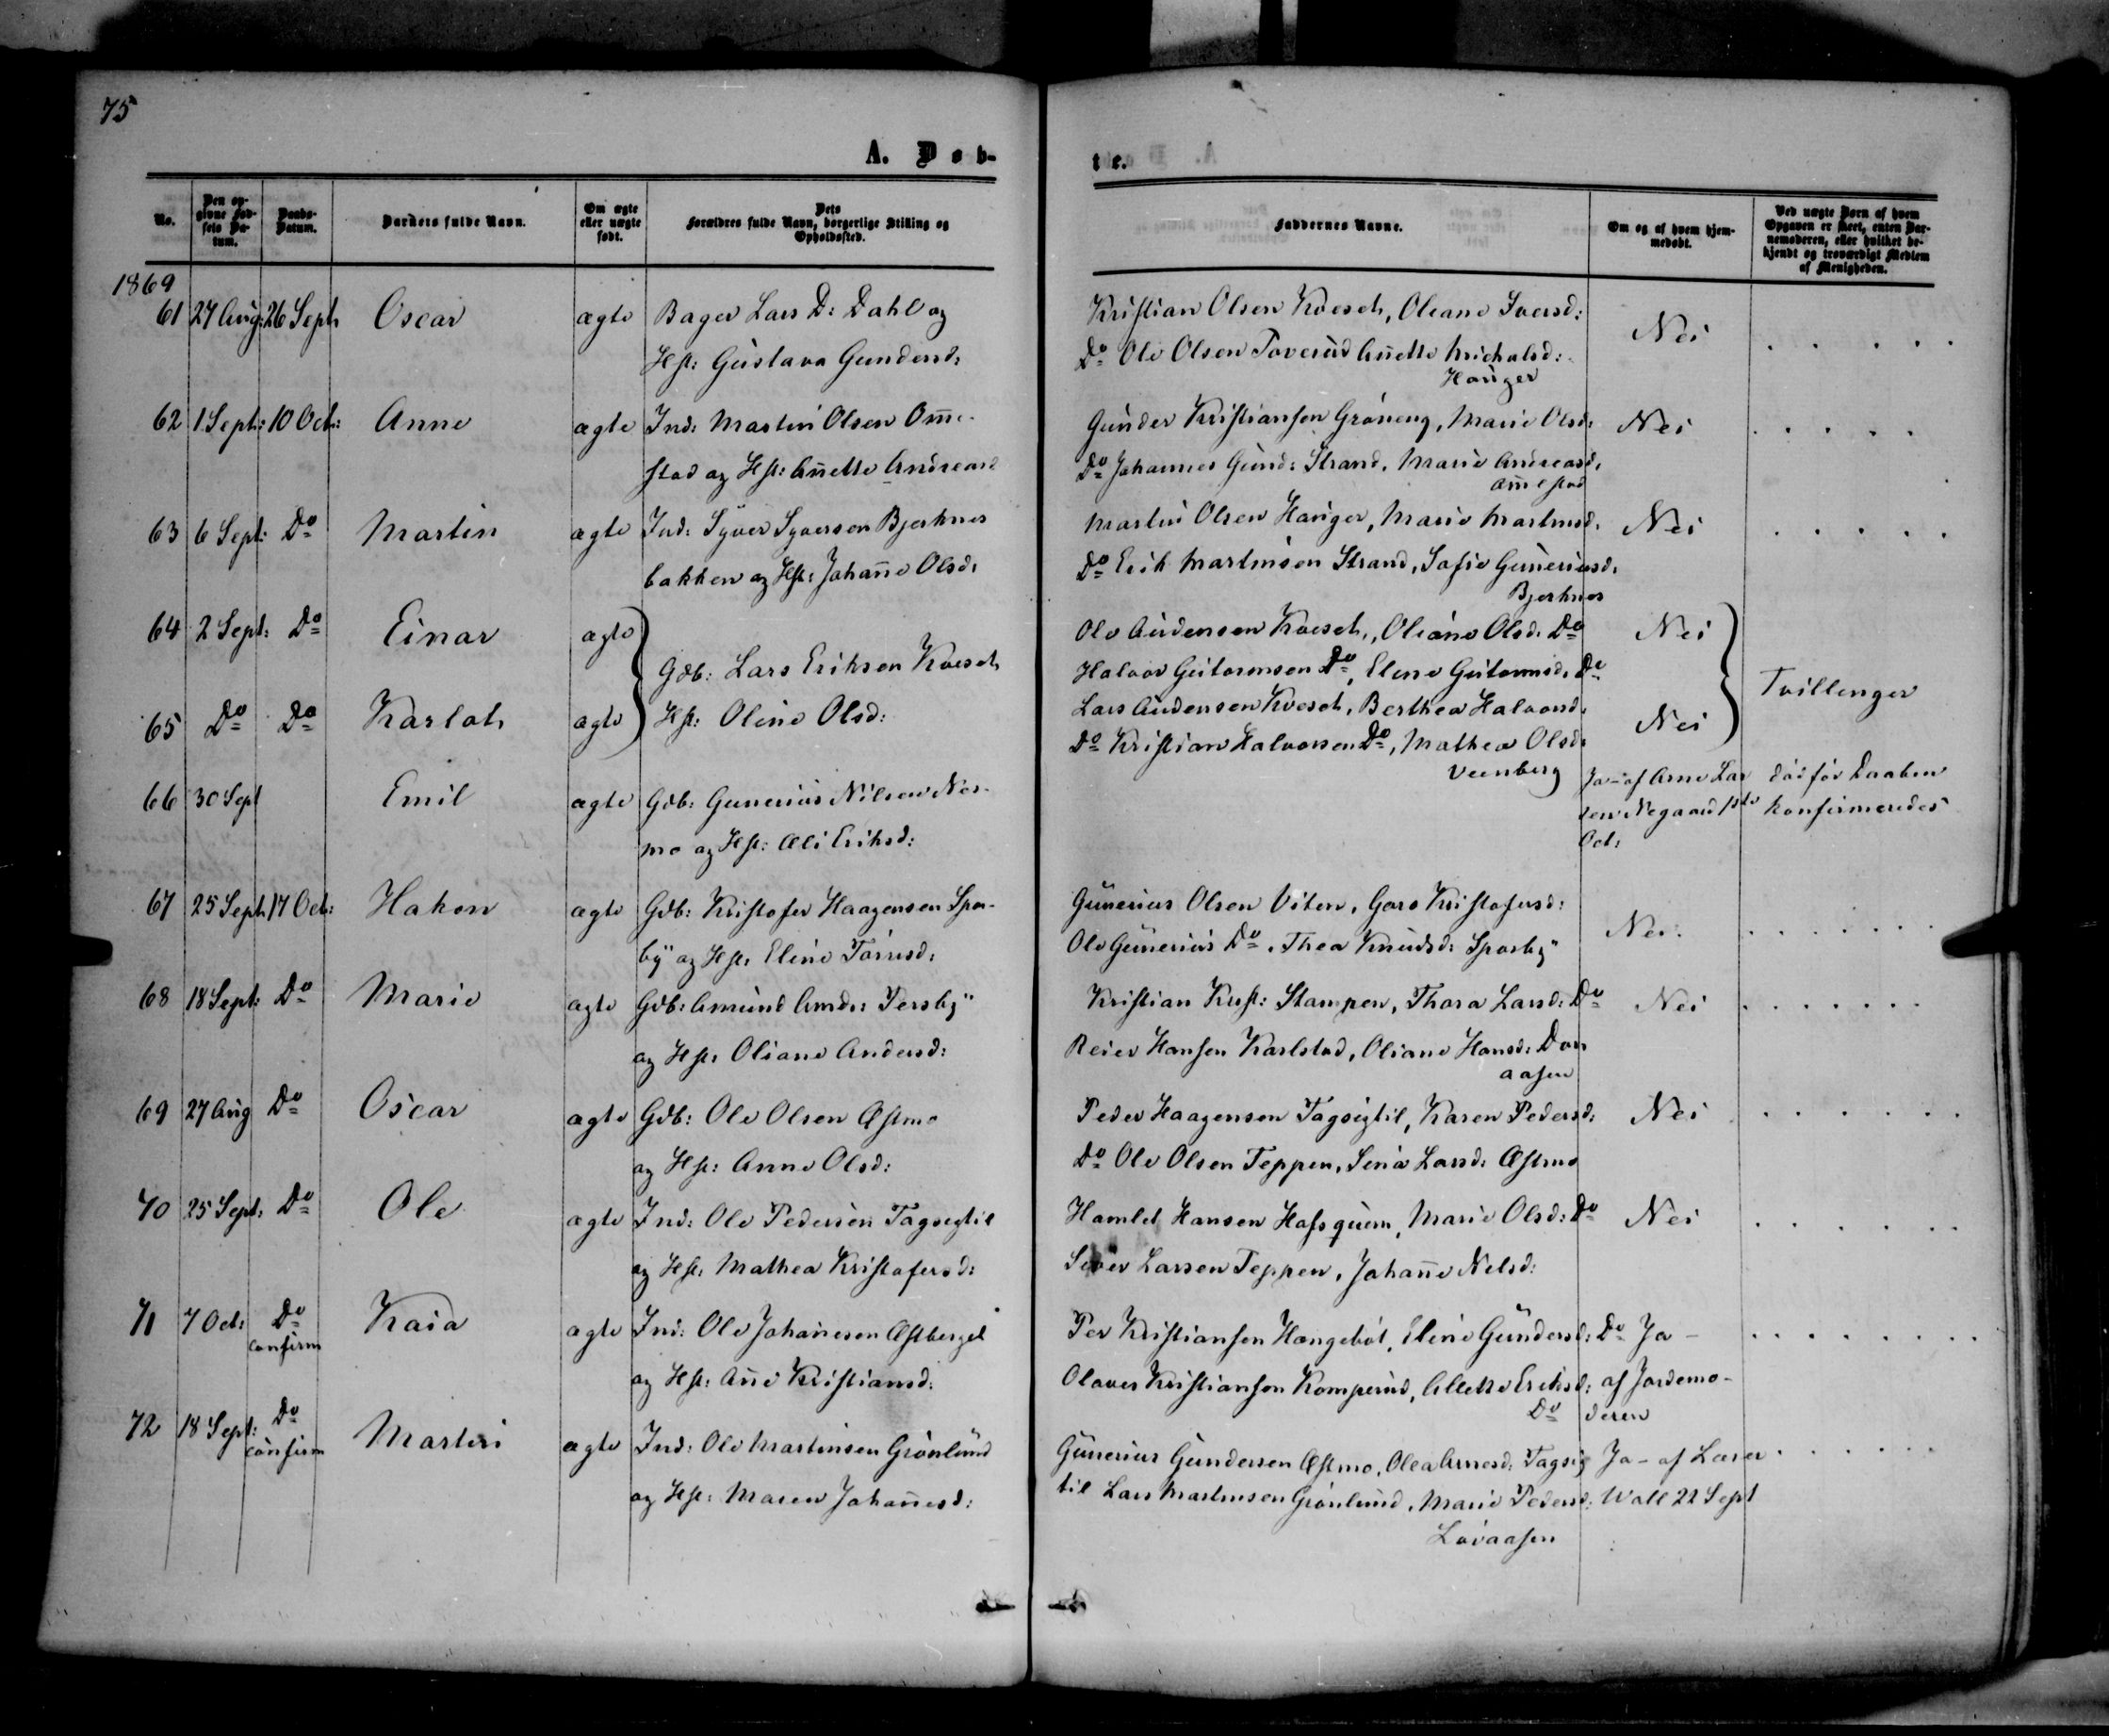 75
A. Døb-
te.
No.
Den op-
givne Fød-
sels Da-
tum.
Daabs-
Datum.
Barnets fulde Navn.
Om ægte
eller uægte
født.
Dets
Forældres fulde Navn, borgerlige Stilling og
Opholdssted.
Faddernes Navne.
Om og af hvem hjem-
medøbt.
Ved uægte Børn af hvem
Opgaven er skeet, enten Bar-
nemoderen, eller hvilket be-
kjendt og troværdigt Medlem
af Menigheden.
1869
61 27 Aug: 26 Sept Oscar ægte Bager Lars D: Dahl og
Hst: Gustava Gundersd:
Kristian Olsen Kveset, Oleane Iversd:
Do Ole Olsen Toverud Anette Michalsd:
Hanger
Nei
62 1 Sept: 10 Oct: Anne ægte Ind: Martin Olsen Omme-
stad og Hst: Anette Andreasd
Gunder Kristiansen Grøneng, Marie Olsd:
Do Johannes Gund: Strand, Marie Andreasd,
Nei
63 6 Sept: Do Martin ægte Ind: Syver Syversen Bjerknes
bakken og Hst: Johanne Olsd:
Martin Olsen Hanger, Marie Martinsd.
Do Erik Martinsen Strand, Sofie Guneriusd.
Bjerknes
Nei
64 2 Sept: Do Einar ægte
Gdb: Lars Eriksen Kveset
65 Do Do Karlot ægte Hst: Oline Olsd:
Ole Audensen Kveset, Oleane Olsd. Do
Halvor Gutormsen Do, Elene Gutormsd. Do
Lars Audensen Kveset, Berthea Halvorsd.
Do Kristian Halvorsen Do, Mathea Olsd:
Veenberg
Nei
Nei
Tvillinger
66 30 Sept Emil ægte Gdb: Gunerius Nilsen Nor-
mo og Hst: Eli Eriksd:
Ja - af Arne Lar
sen Negaard 1ste
Oct:
død før Daaben
konfirmeredes
67 25 Sept 17 Oct: Hakon ægte Gdb: Kristofer Haagensen Spor-
by og Hst. Eline Torersd:
Gunerius Olsen Viten, Goro Kristofersd:
Ole Gunerius Do, Thea Knudsd: Sporby
Nei.
68 18 Sept: Do Marie ægte Gdb: Amund Amds: Fersby
og Hst: Oliane Andersd:
Kristian Krist: Stampen, Thora Larsd: Do
Reier Hansen Karlstad, Oliane Hansd:
aasen
Nei
69 27 Aug Do Oscar ægte Gdb: Ole Olsen Østmo
og Hst: Anne Olsd:
Peder Haagensen Tagsigtil, Karen Pedersd:
Do Ole Olsen Teppen, Sina Larsd: Østmo
Nei
70 25 Sept: Do Ole ægte Ind: Ole Pedersen Tagsigtil
og Hst: Mathea Kristofersd:
Hamlet Hansen Marie Olsd: Do
Siver Larsen Teppen, Johanne Nilsd:
Nei
71 7 Oct: Do Kaia ægte Ind: Ole Johannesen Østberget
confirm
og Hst: Anne Kristiansd.
Per Kristiansen Hængebøl, Eline Gundersd: Do
Olaves Kristiansen Komperud, Allette Eriksd:
Do
Ja -
af Jordemo-
deren
72 18 Sept: Do Martin ægte Ind: Ole Martinsen Grønlund
confirm
og Hst: Maren Johannesd:
Gunerius Gundersen Østmo, Olea Arnesd: Tagsig
til Lars Martinsen Grønlund, Marie Pedersd:
Lövaasen
Ja - af Lærer
Wall 22 Sept